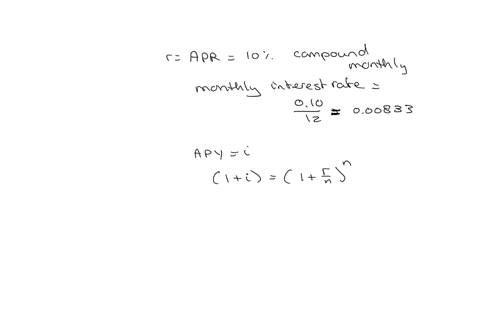 r = APR = 10%. campound monthly
monthly interest rate =
0.10/12 = 0.00833
APY = i
(1+i) = (1 + r/n)^n